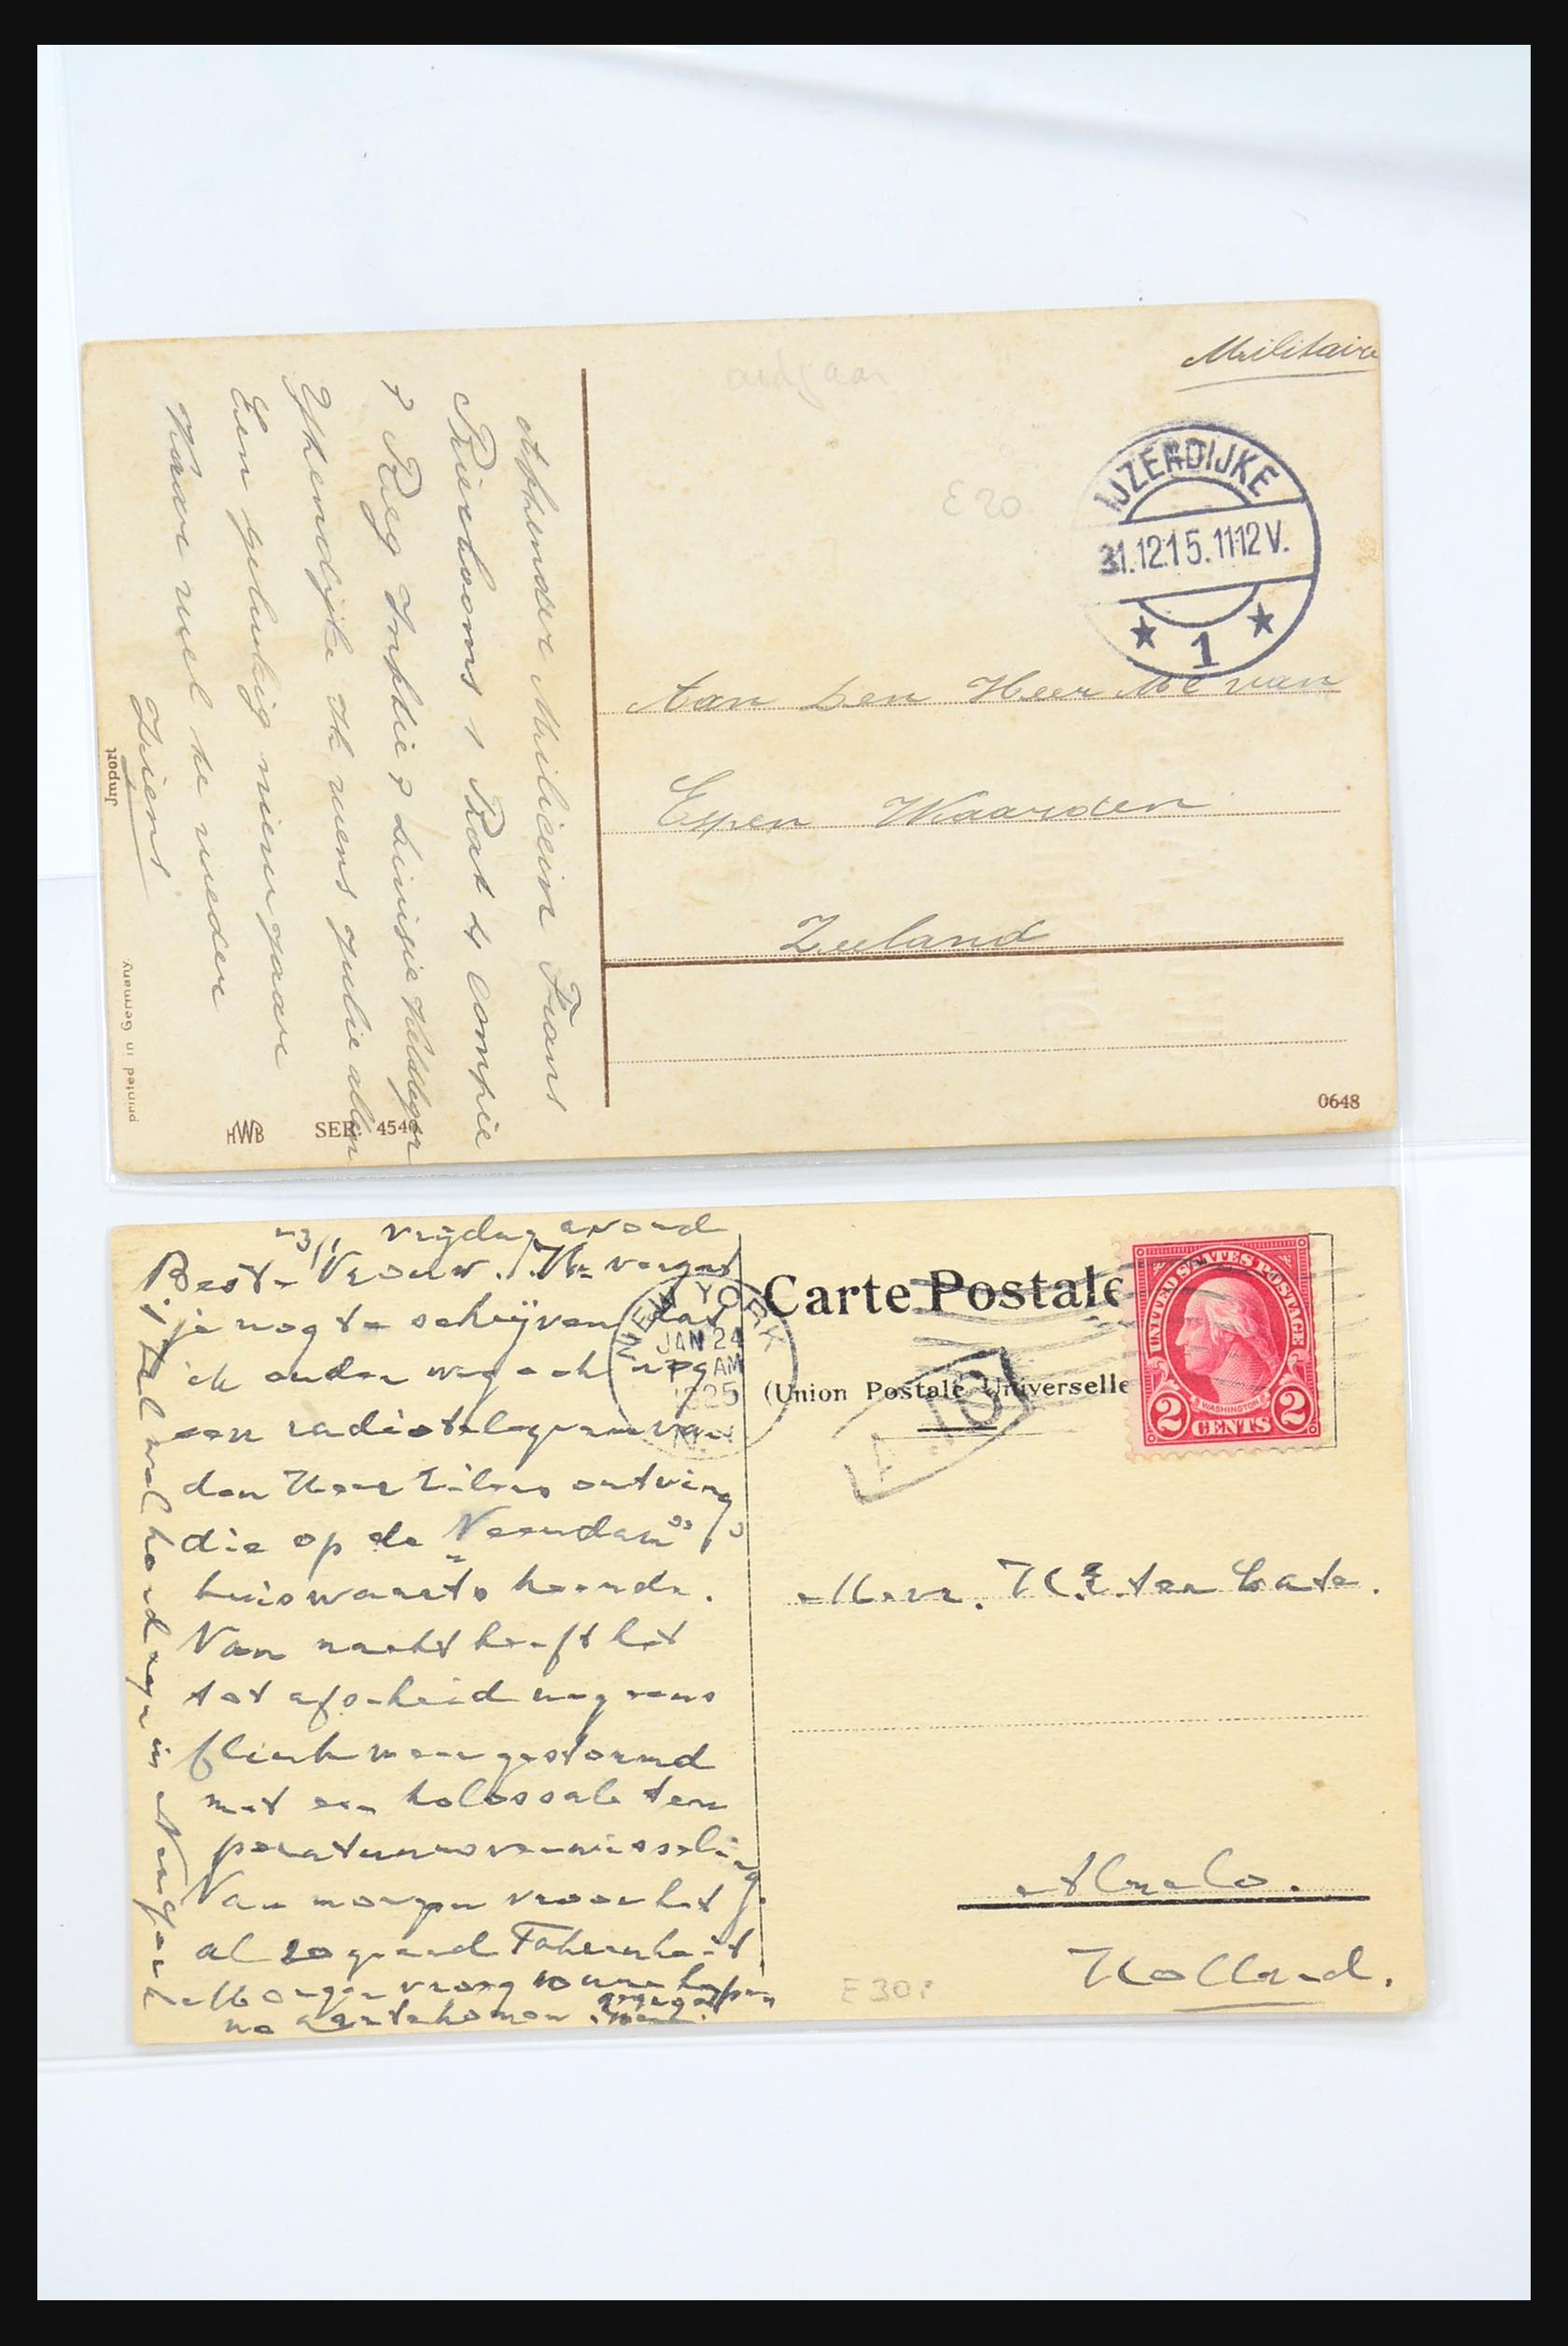 Militair
oudjaar
E 20
IJZERDIJKE
31.12.15.1112V.
1
Aan Den Heer Me van
Espen Waarden
Zeeland
Afzender Milicien Frans
1 Bat 4 Compie
Reg Inftie Divisie Veldleger
IJzendijke Ik wens jullie allen
Een gelukkig nieuwjaar
Vaar wel te weden
Import
printed in Germany
HWB
SER. 454
0648
23/1 vrijdag avond
Beste Vrouw. Ik vergat
je nog te schrijven dat
ik onder weg ook nog
een radiotelegram van
den Heer ontving
die op de "Veendam",
huiswaarts keerde.
Van nacht heeft het
tot afscheid nog eens
flink weer gestormd
met een kolossale tem
peratuursverwisseling.
Van morgen vroor het
al 20 graad Fahrenheit
Morgen vroeg 10 uur hopen
we aan te komen.
NEW YORK
JAN 24
AM
1925
N.Y.
Carte Postale
(Union Postale Universelle
UNITED STATES POSTAGE
WASHINGTON
2 CENTS 2
Mevr. H. E. ten Cate.
Almelo.
Holland.
E 30: